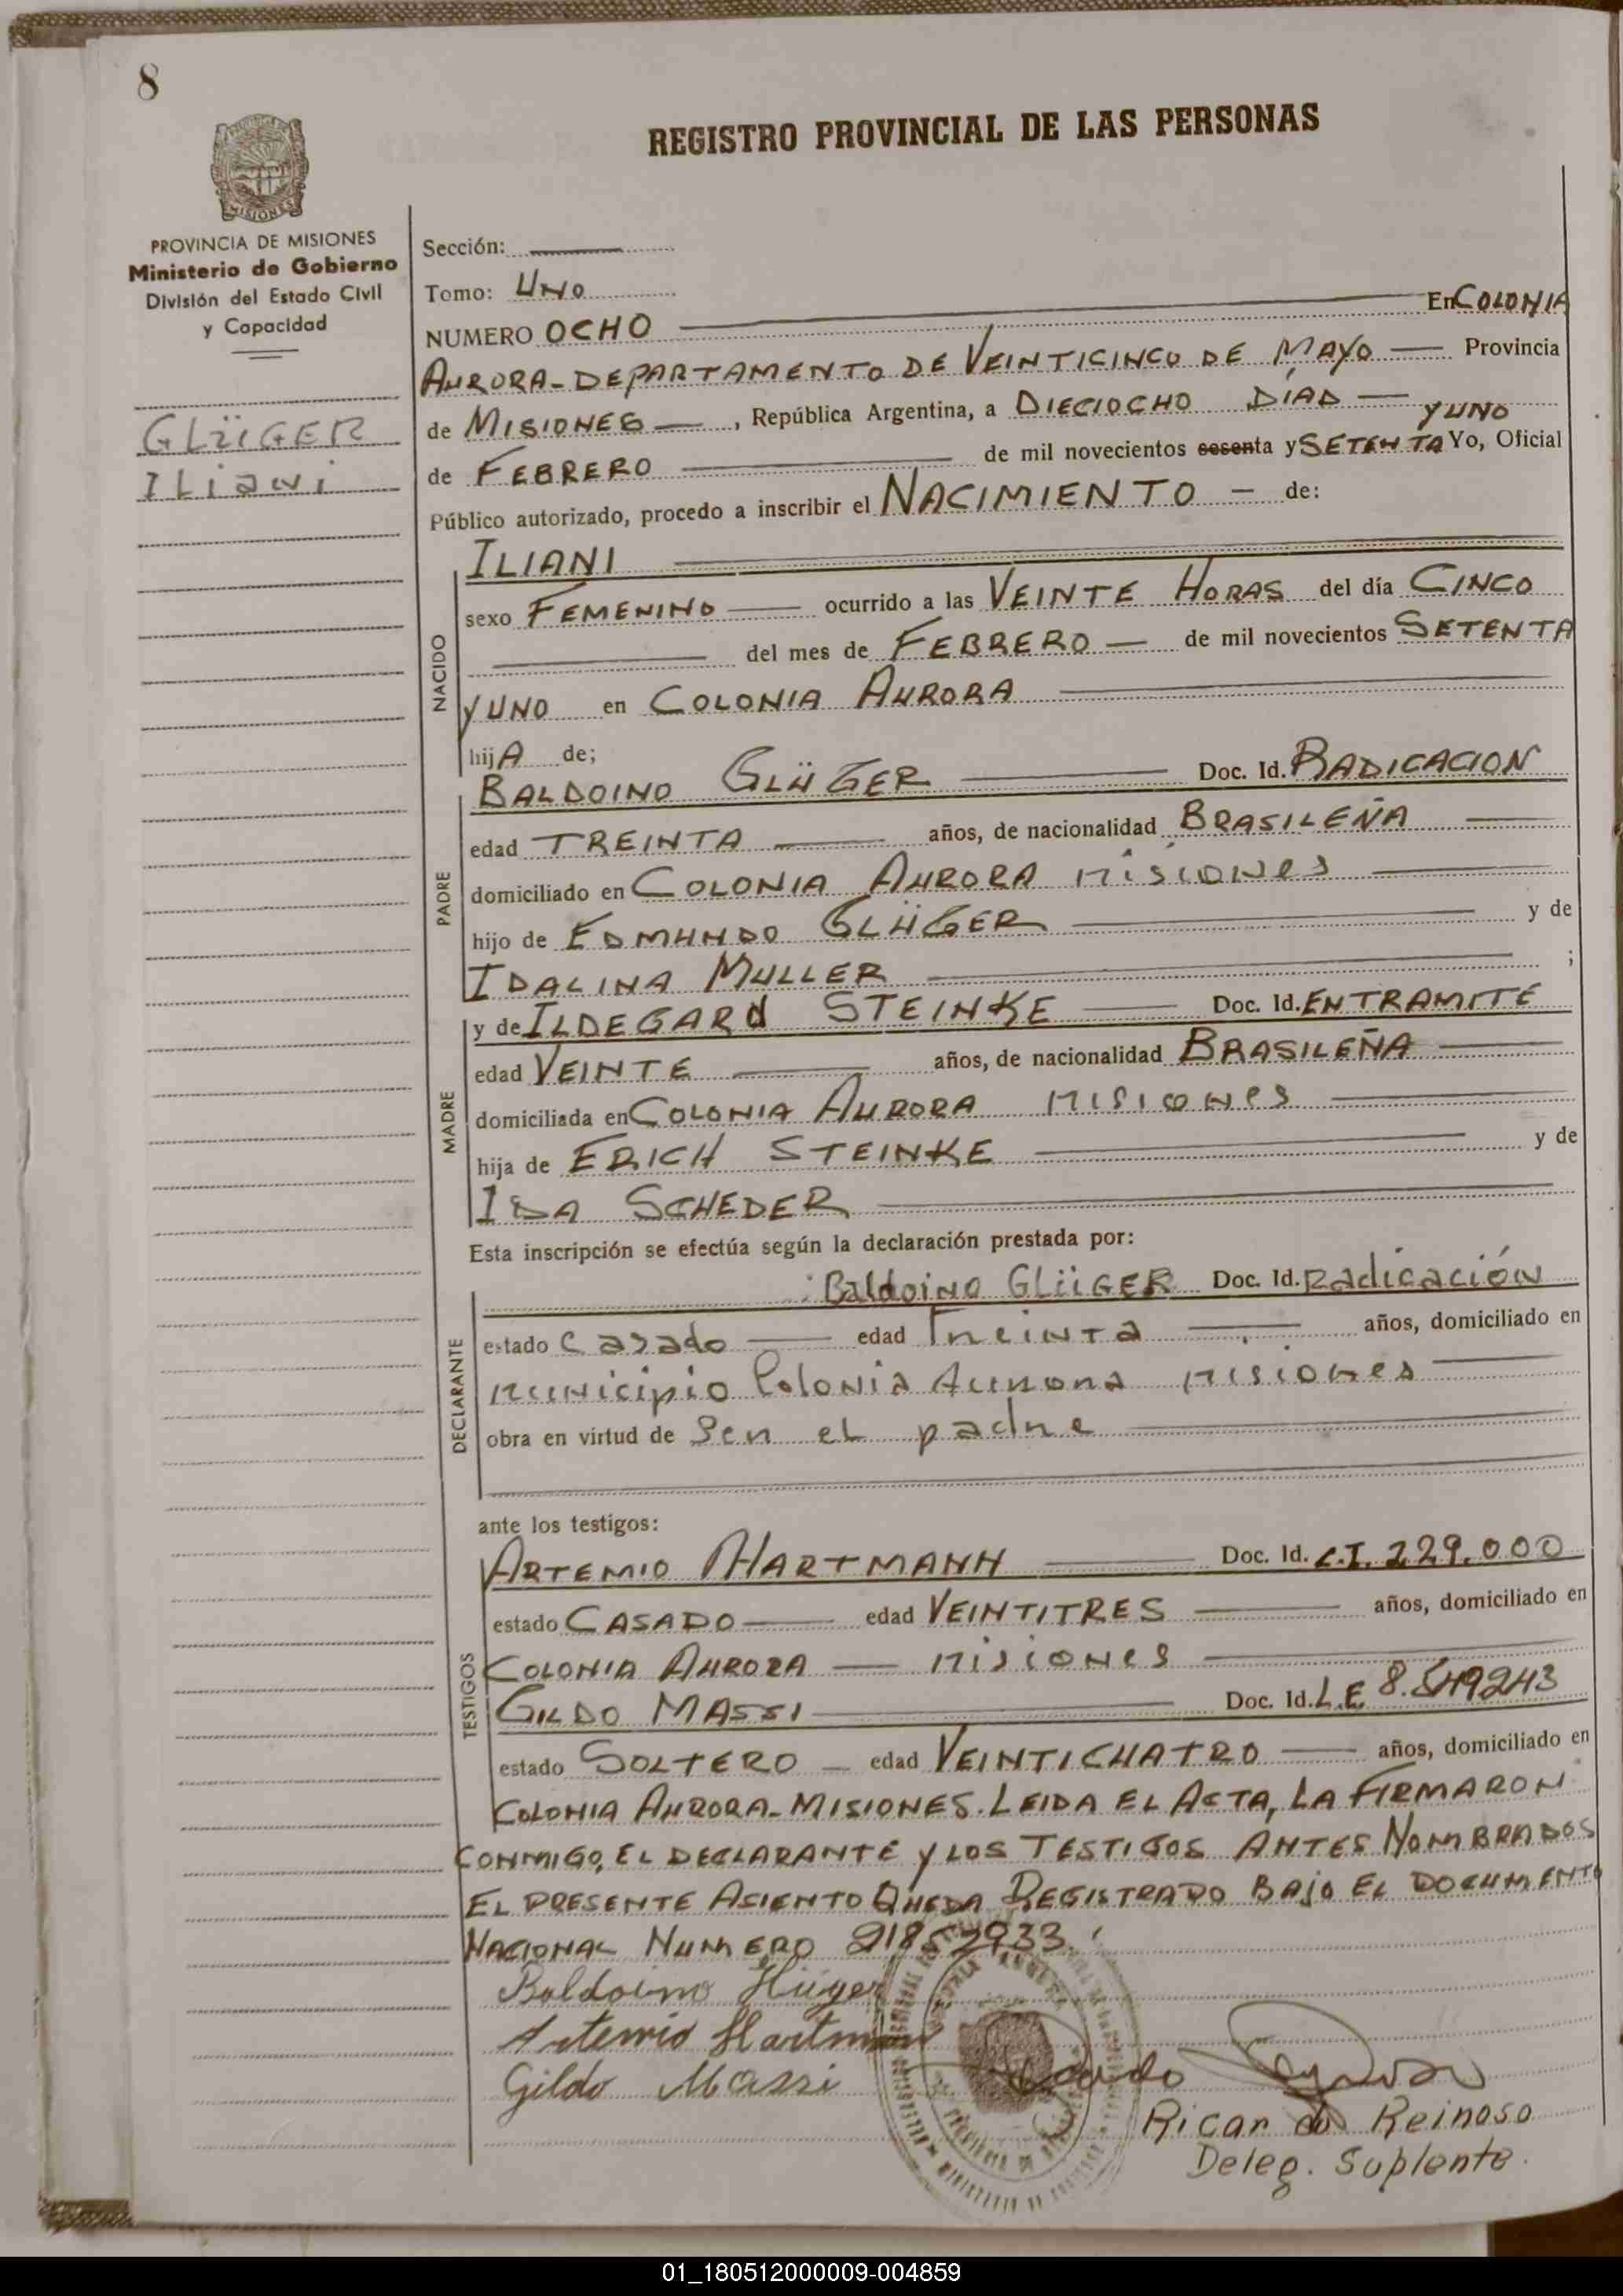 8
REGISTRO PROVINCIAL DE LAS PERSONAS
MISIONES
PROVINCIA DE MISIONES
Ministerio de Gobierno
División del Estado Civil
y Capacidad
GLÜGER
ILiani
Sección:
Tomo: UNO
NUMERO OCHO En COLONIA
AURORA - DEPARTAMENTO DE VEINTICINCO DE MAYO Provincia
de MISIONES, República Argentina, a DIECIOCHO DÍAS
y UNO
de FEBRERO de mil novecientos sesenta y SETENTA Yo, Oficial
Público autorizado, procedo a inscribir el NACIMIENTO de:
ILIANI
NACIDO
sexo FEMENINO ocurrido a las VEINTE HORAS del día CINCO
del mes de FEBRERO de mil novecientos SETENTA
Y UNO en COLONIA AURORA
hijA de;
PADRE
BALDOINO GLÜGER Doc. Id. RADICACION
edad TREINTA años, de nacionalidad BRASILEÑA
domiciliado en COLONIA AURORA Misiones
hijo de EDMUNDO GLÜGER y de
IDALINA MULLER ;
MADRE
y de ILDEGARd STEINKE Doc. Id. EN TRAMITE
edad VEINTE años, de nacionalidad BRASILEÑA
domiciliada en COLONIA AURORA Misiones
hija de ERICH STEINKE y de
IDA SCHEDER
Esta inscripción se efectúa según la declaración prestada por:
DECLARANTE
Baldoino GLÜGER Doc. Id. Radicación
estado Casado edad Treinta años, domiciliado en
Municipio Colonia Aurora Misiones
obra en virtud de Ser el padre
ante los testigos:
TESTIGOS
ARTEMIO HARTMANN Doc. Id. C.I. 229.000
estado CASADO edad VEINTITRES años, domiciliado en
COLONIA AURORA — Misiones
GILDO MASSI Doc. Id. L.E 8.549243
estado SOLTERO edad VEINTICUATRO años, domiciliado en
COLONIA AURORA - MISIONES. LEIDA EL ACTA, LA FIRMARON
CONMIGO, EL DECLARANTE Y LOS TESTIGOS ANTES NOMBRADOS
EL PRESENTE ASIENTO QUEDA REGISTRADO BAJO EL DOCUMENTO
NACIONAL NUMERO
Baldoino Glüger
Artemio Hartmann
Gildo Massi
Ricardo Reinoso
Deleg. Suplente.
01_180512000009-004859